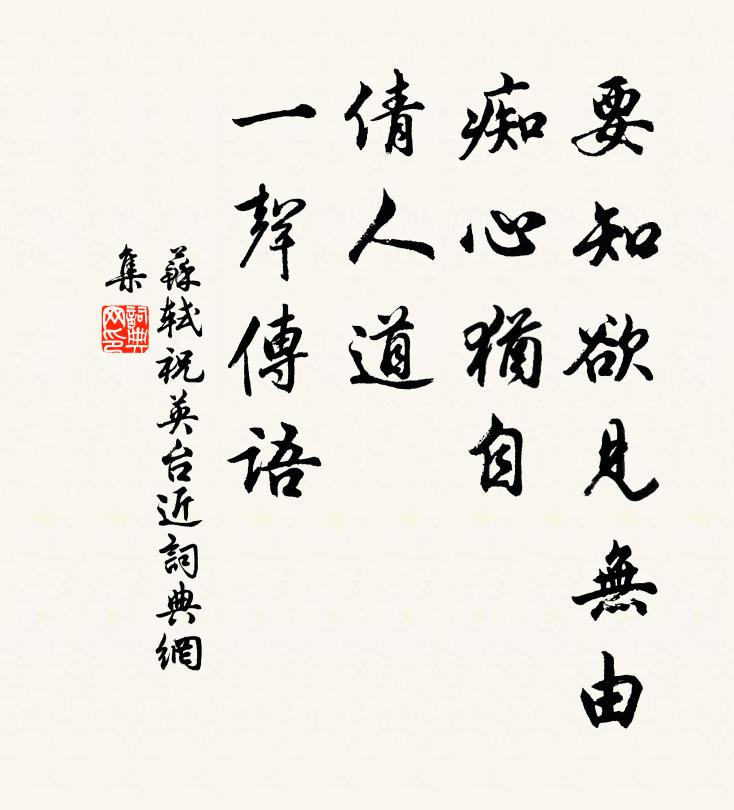 要知欲見無由
痴心猶自
倩人道
一聲傳語
蘇軾祝英台近詞典網
集
詞典
网印